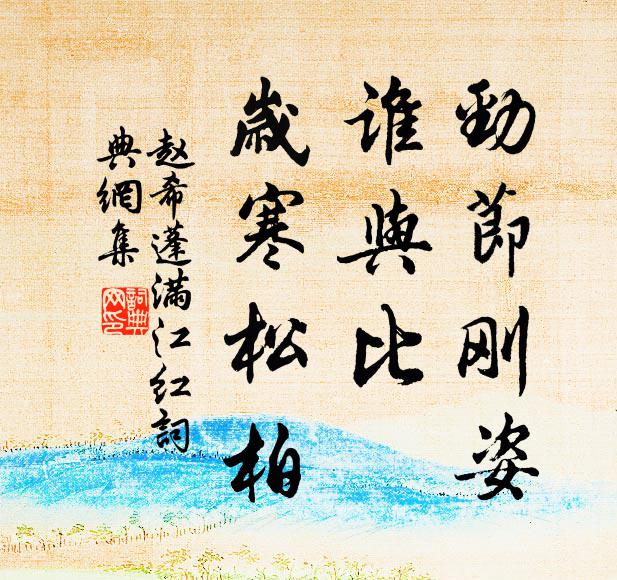 勁節刚姿
誰與比
歲寒松柏
赵希蓬满江红詞
典網集
詞典
网印